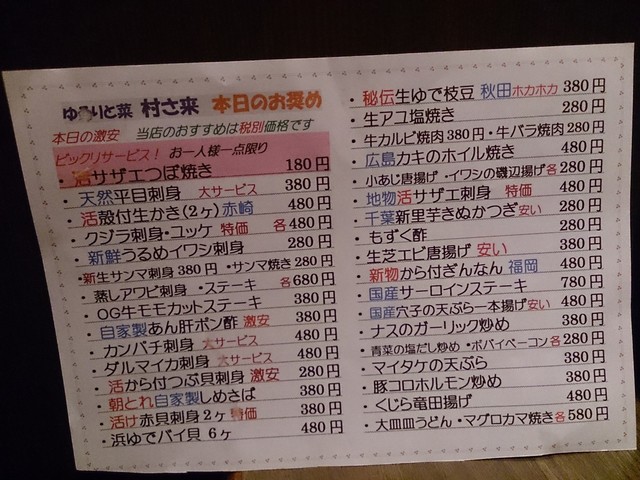 ゆ りと菜 村さ来 本日のお奨め
本日の激安 当店のおすすめは税別価格です
ビックリサービス! お一人様一点限り
・活サザエつぼ焼き 180円
・天然平目刺身 大サービス 380円
・活殻付生かき(2ヶ)赤崎 480円
・クジラ刺身・ユッケ 特価 各480円
・新鮮うるめイワシ刺身 280円
・新生サンマ刺身380円・サンマ焼き280円
・蒸しアワビ刺身・ステーキ 各680円
・OG牛モモカットステーキ 380円
・自家製あん肝ポン酢 激安 380円
・カンパチ刺身 大サービス 480円
・ダルマイカ刺身 大サービス 480円
・活から付つぶ貝刺身 激安 280円
・朝とれ自家製しめさば 380円
・活け赤貝刺身2ヶ 特価 380円
・浜ゆでバイ貝 6ヶ 480円
・秘伝生ゆで枝豆 秋田ホカホカ 380円
・生アユ塩焼き 280円
・牛カルビ焼肉380円・牛バラ焼肉280円
・広島カキのホイル焼き 480円
・小あじ唐揚げ・イワシの磯辺揚げ各280円
・地物活サザエ刺身 特価 480円
・千葉新里芋きぬかつぎ安い 280円
・もずく酢 280円
・生芝エビ唐揚げ 安い 380円
・新物から付ぎんなん 福岡 480円
・国産サーロインステーキ 780円
・国産穴子の天ぷら一本揚げ安い 480円
・ナスのガーリック炒め 380円
・青菜の塩だし炒め・ポパイベーコン各280円
・マイタケの天ぷら 380円
・豚コロホルモン炒め 380円
・くじら竜田揚げ 480円
・大皿皿うどん・マグロカマ焼き各580円